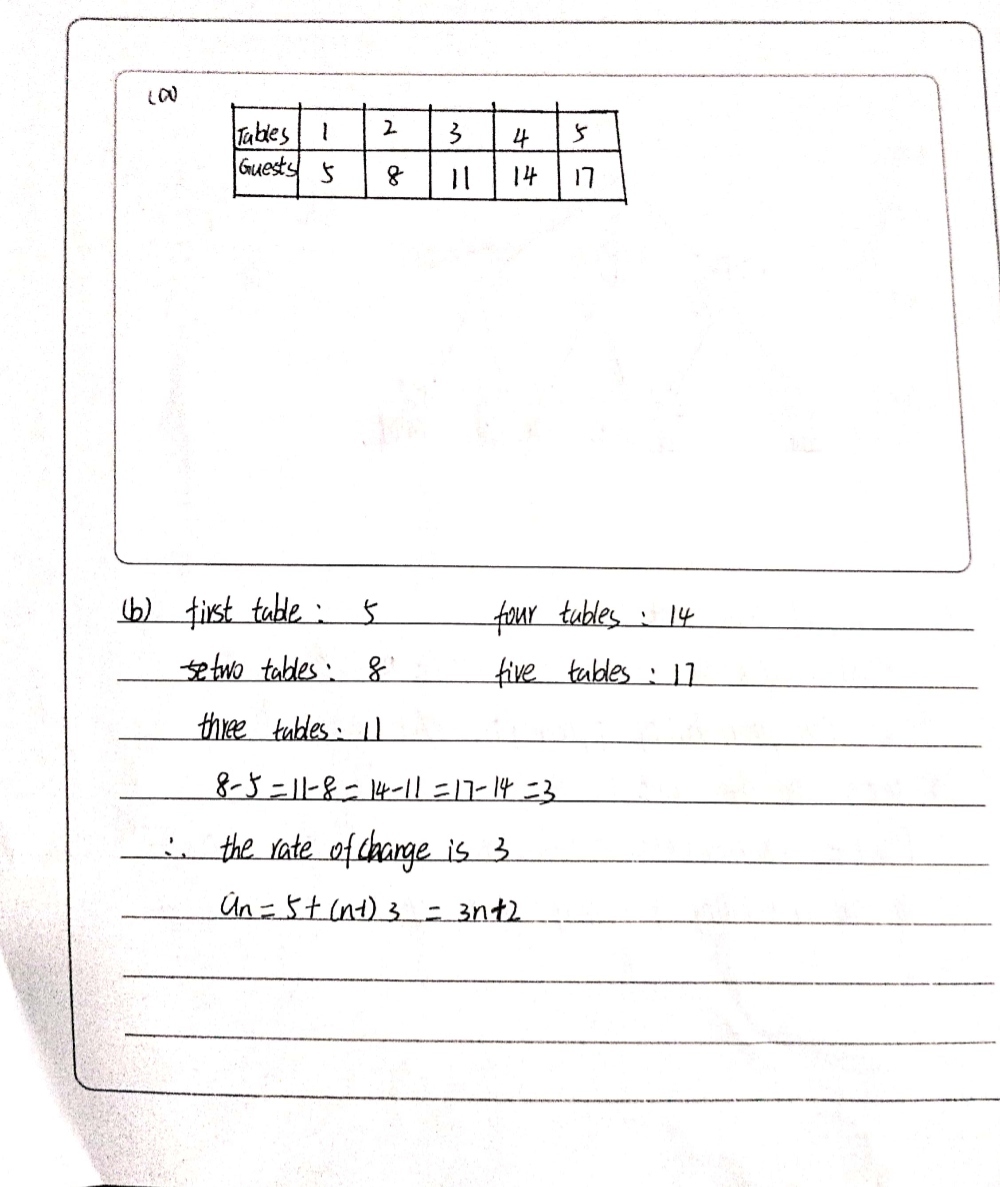 (a)
Tables 1 2 3 4 5
Guests 5 8 11 14 17
(b) first table : 5 four tables : 14
two tables : 8 five tables : 17
three tables : 11
8-5=11-8=14-11=17-14=3
∴ the rate of change is 3
an = 5+(n-1)3 = 3n+2